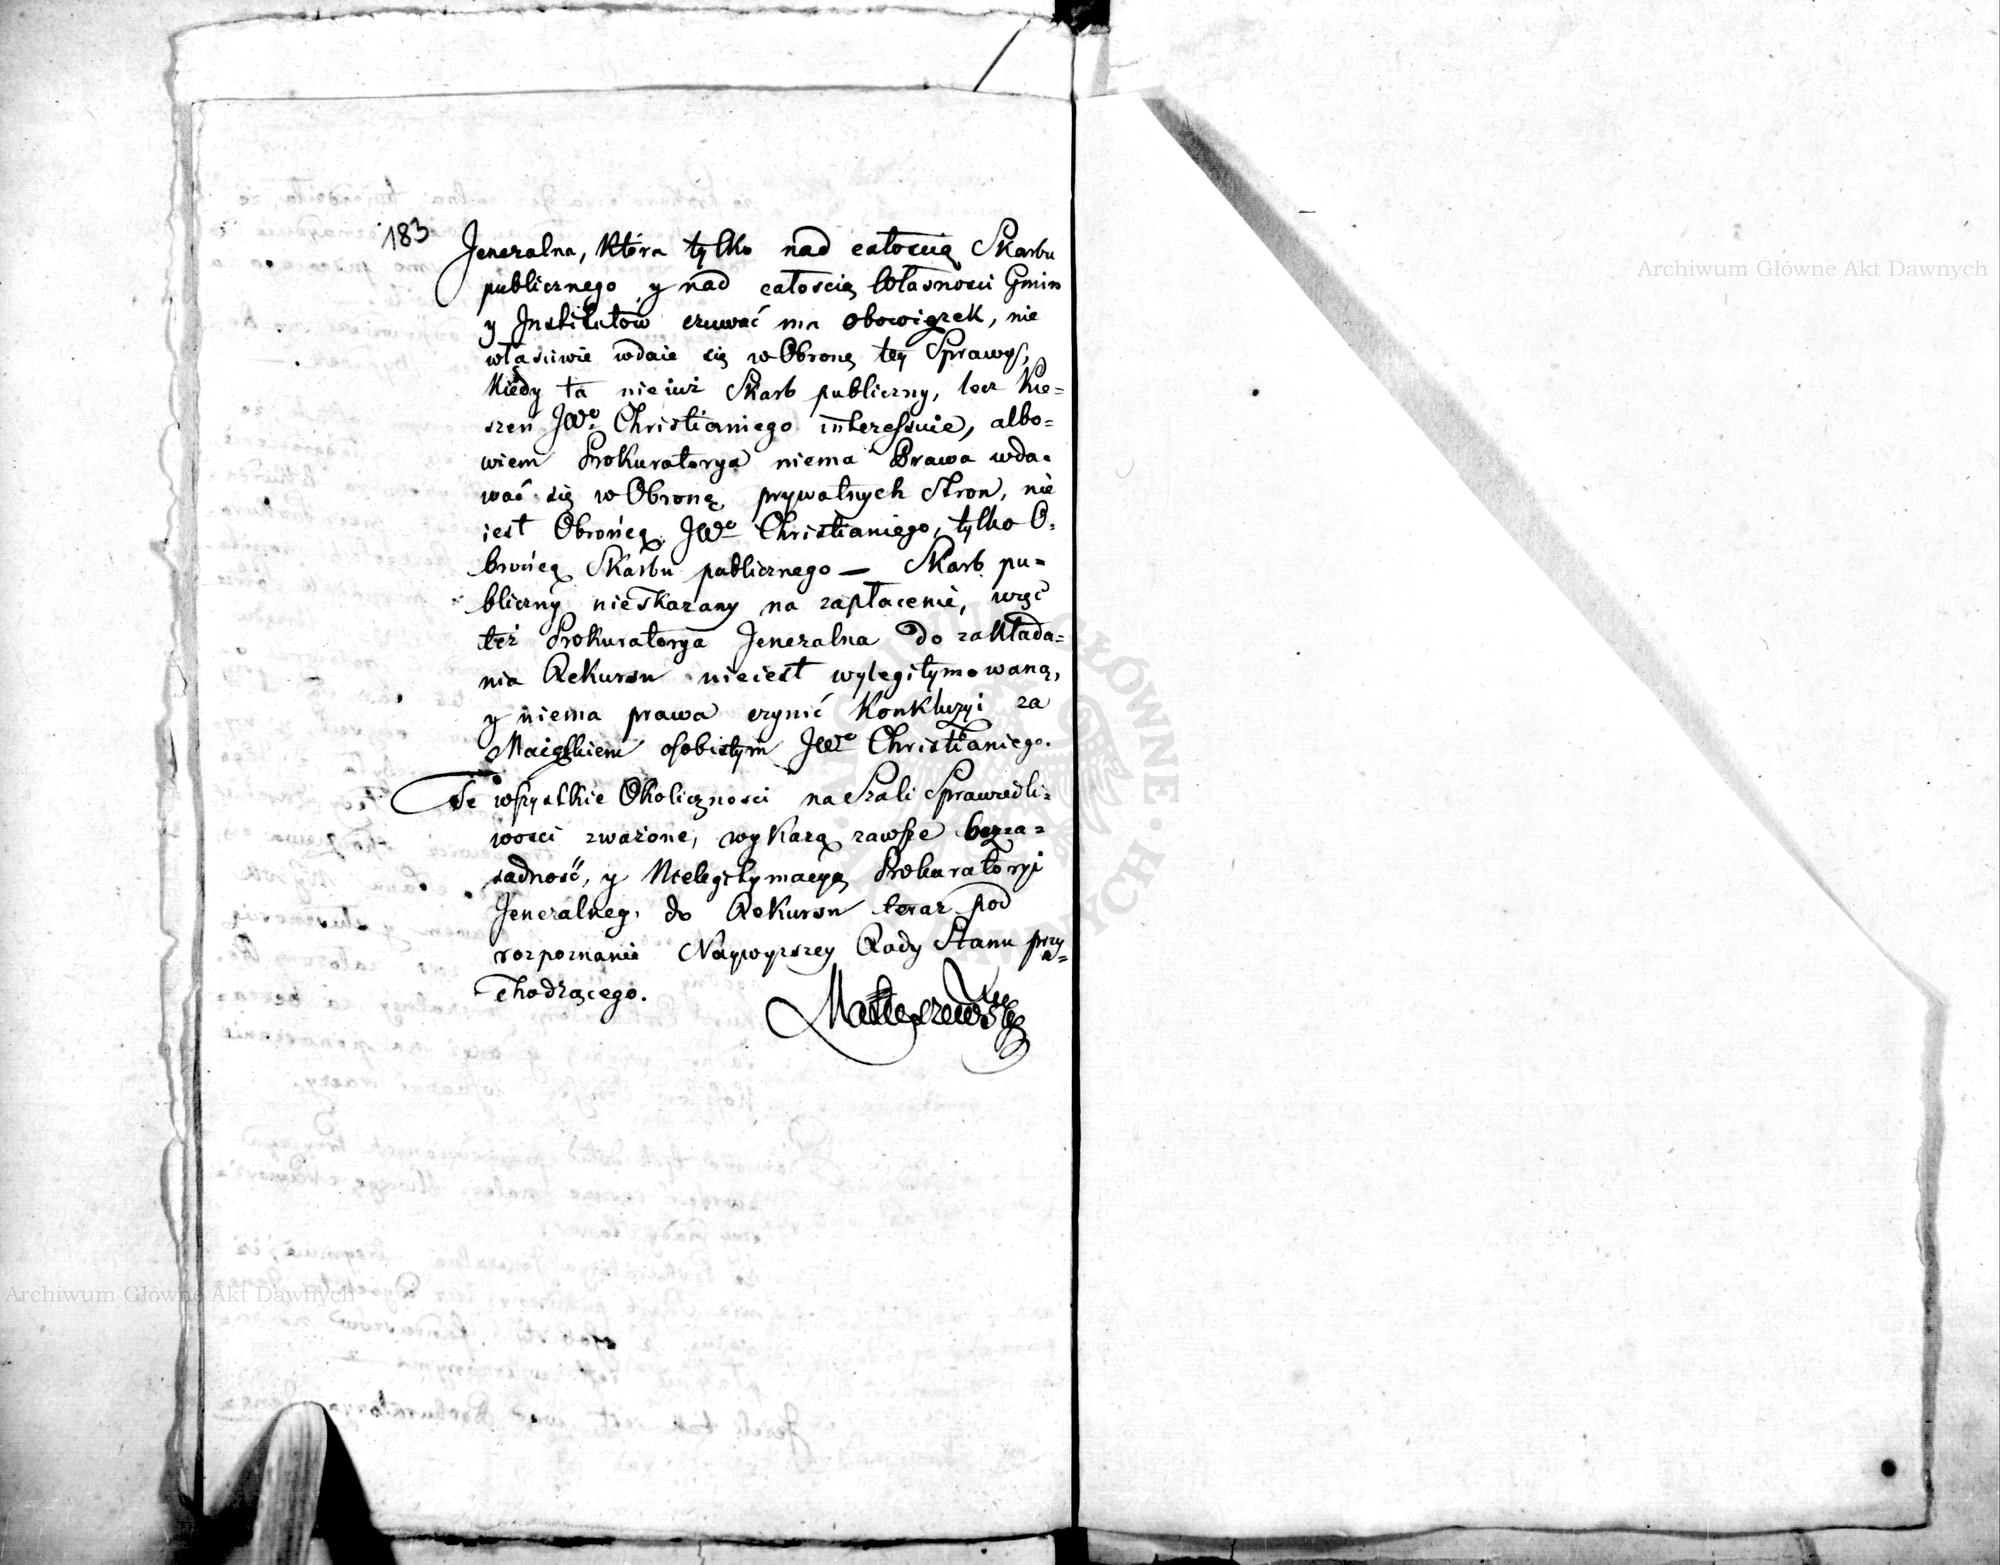 183
Jeneralna, która tylko nad całością Skarbu
publicznego y nad całością własności Gmin
y Jnstitutów czuwać ma obowiązek, nie
właściwie wdaie się w Obronę tey Sprawy,
kiedy ta nie iuż Skarb publiczny, lecz kie=
szeń JWo Christianiego interessuie, albo=
wiem Prokuratorya niema Prawa wda=
wać się w Obronę prywatnych Stron, nie
iest Obrońcą JWo Christianiego, tylko O=
brońcą Skarbu publicznego — Skarb pu=
bliczny nieskazany na zapłacenie, więc
też Prokuratorya Jeneralna do zakłada=
nia Rekursu nieiest wylegitymowaną,
y niema prawa czynić Konkluzyi za
Maiątkiem osobistym JWo Christianiego.
Te wszystkie Okoliczności na Szali Sprawiedli=
wości zważone, wykażą zawsze bezza=
sadność, y Nielegitymacyą Prokuratoryi
Jeneralney, do Rekursu teraz pod
rozpoznanie Naywyższey Rady Stanu przy=
chodzącego.
Archiwum Główne Akt Dawnych
Archiwum Główne Akt Dawnych